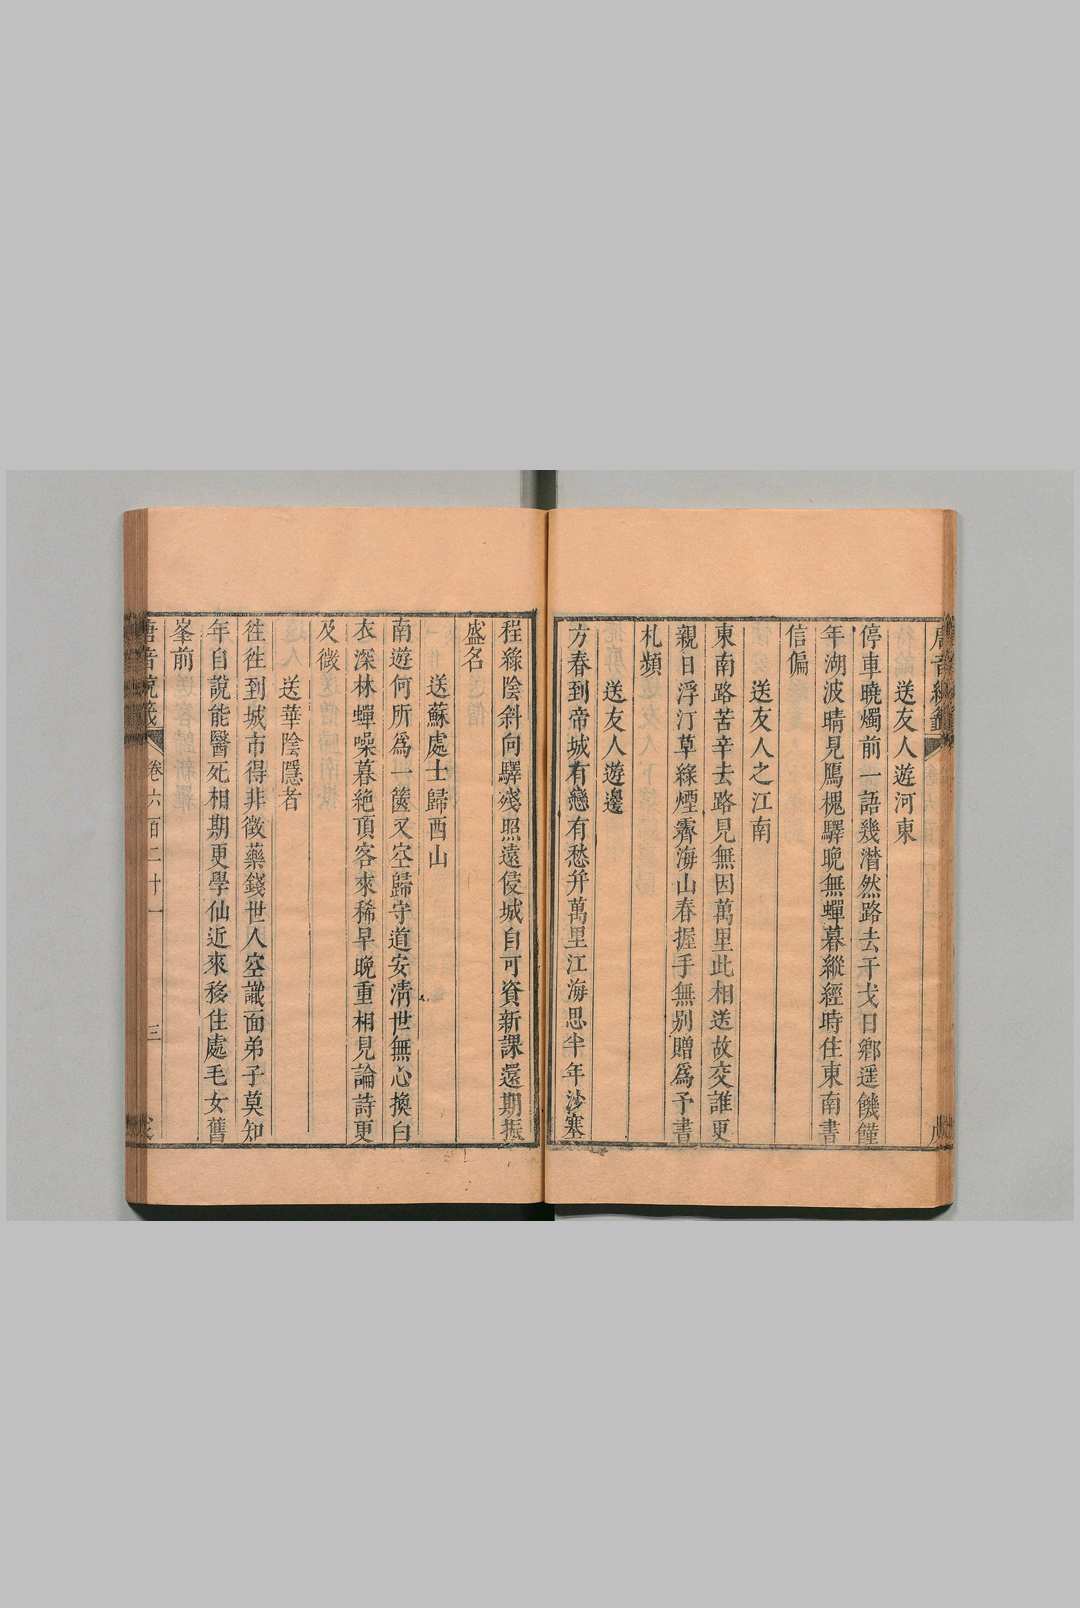 送友人遊河東
停車曉燭前一語幾潸然路去干戈日鄉遥饑饉
年湖波晴見鴈槐驛晚無蟬暮縱經時住東南書
信偏
送友人之江南
東南路苦辛去路見無因萬里此相送故交誰更
親日浮汀草綠煙霽海山春握手無别贈爲予書
札頻
送友人遊邊
方春到帝城有戀有愁并萬里江海思半年沙塞
程綠陰斜向驛殘照遠侵城自可資新課還期振
盛名
送蘇處士歸西山
南遊何所爲一篋又空歸守道安清世無心換白
衣深林蟬噪暮絶頂客來稀早晚重相見論詩更
及微
送華陰隱者
徃徃到城市得非徵藥錢世人空識面弟子莫知
年自說能醫死相期更學仙近來移住處毛女舊
峯前
唐音統籖 卷六百二十一 三